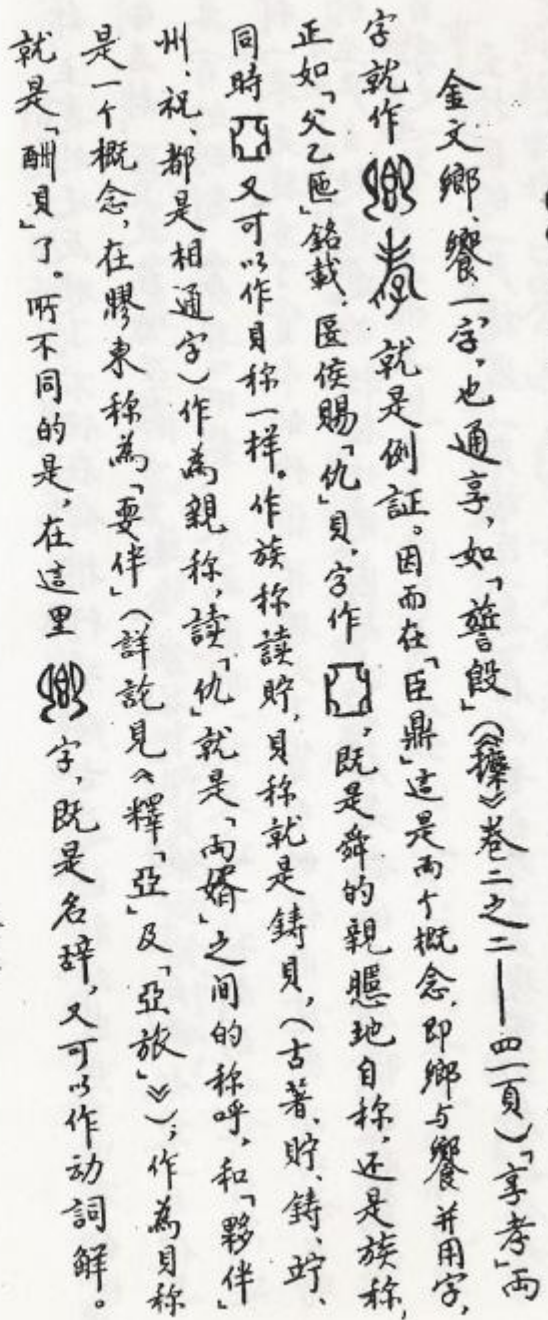 金文鄉、饗一字，也通享，如「䇂𣪘」（《攈》卷二之二——四一頁）「享孝」兩
字就作　　就是例証。因而在「臣鼎」這是兩个概念，即鄉与饗并用字，
正如「父乙匜」銘載：匽侯賜「仇」貝，字作　，既是舜的親暱地自称，还是族称，
同時　又可以作貝称一样。作族称讀貯，貝称就是鑄貝，（古著、貯、鑄、竚、
州、祝、都是相通字）作為親称，讀「仇」就是「兩婿」之间的称呼，和「夥伴」
是一个概念，在膠東称為「耍伴」（詳說見《釋「亞」及「亞旅」》）；作為貝称
就是「酬貝」了。所不同的是，在這里　字，既是名辞，又可以作动詞解。